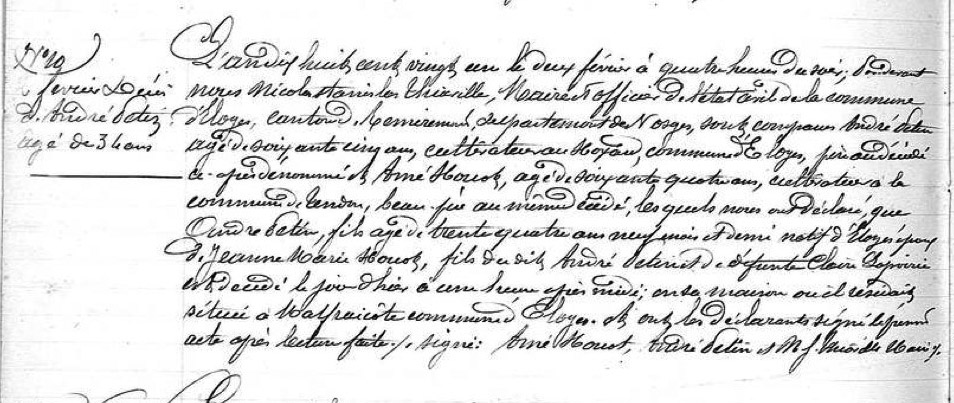 N° 19
février Décès
d'André Petin
agé de 34 ans
L'an dix huit cent vingt un le deux février à quatre heures du soir, pardevant
nous Nicolas Stanislas Thiaville, Maire et officier de l'état civil de la commune
d'Eloyes, canton de Remiremont, département des Vosges, sont comparus André Petin
agé de soixante cinq ans, cultivateur au commune d'Eloyes, père au décédé
ci-après dénommé et Amé Houot, agé de soixante quatre ans, cultivateur à la
commune de Tendon, beau-père au même décédé, les quels nous ont déclaré, que
André Petin, fils agé de trente quatre ans neuf mois et demi natif d'Eloyes époux
de Jeanne Marie Houot, fils du dit André Petin et de défunte Claire
est décédé le jour d'hier à une heure après midi; en sa maison où il résidait
située à commune d'Eloyes. et ont les déclarants signé le présent
acte après lecture faite./. signé: Amé Houot, André Petin et Maire /.